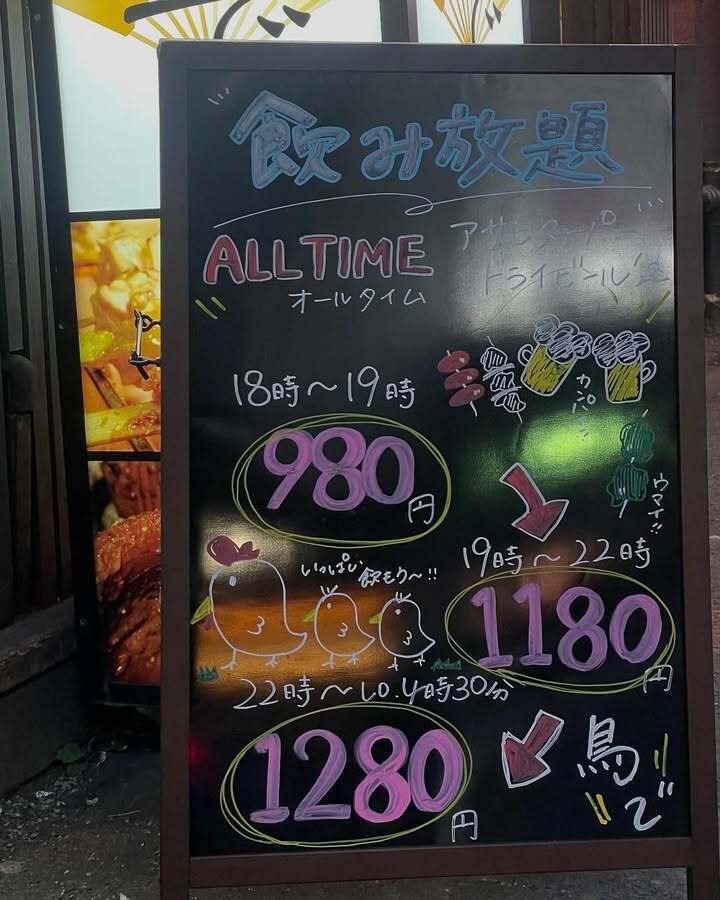 飲み放題
ALLTIME
オールタイム
アサヒスーパー
ドライビール
18時〜19時
980円
カンパーイ
ウマイ!!
19時〜22時
1180円
いっぱい
飲もう〜!!
22時〜LO.4時30分
1280円
鳥
で